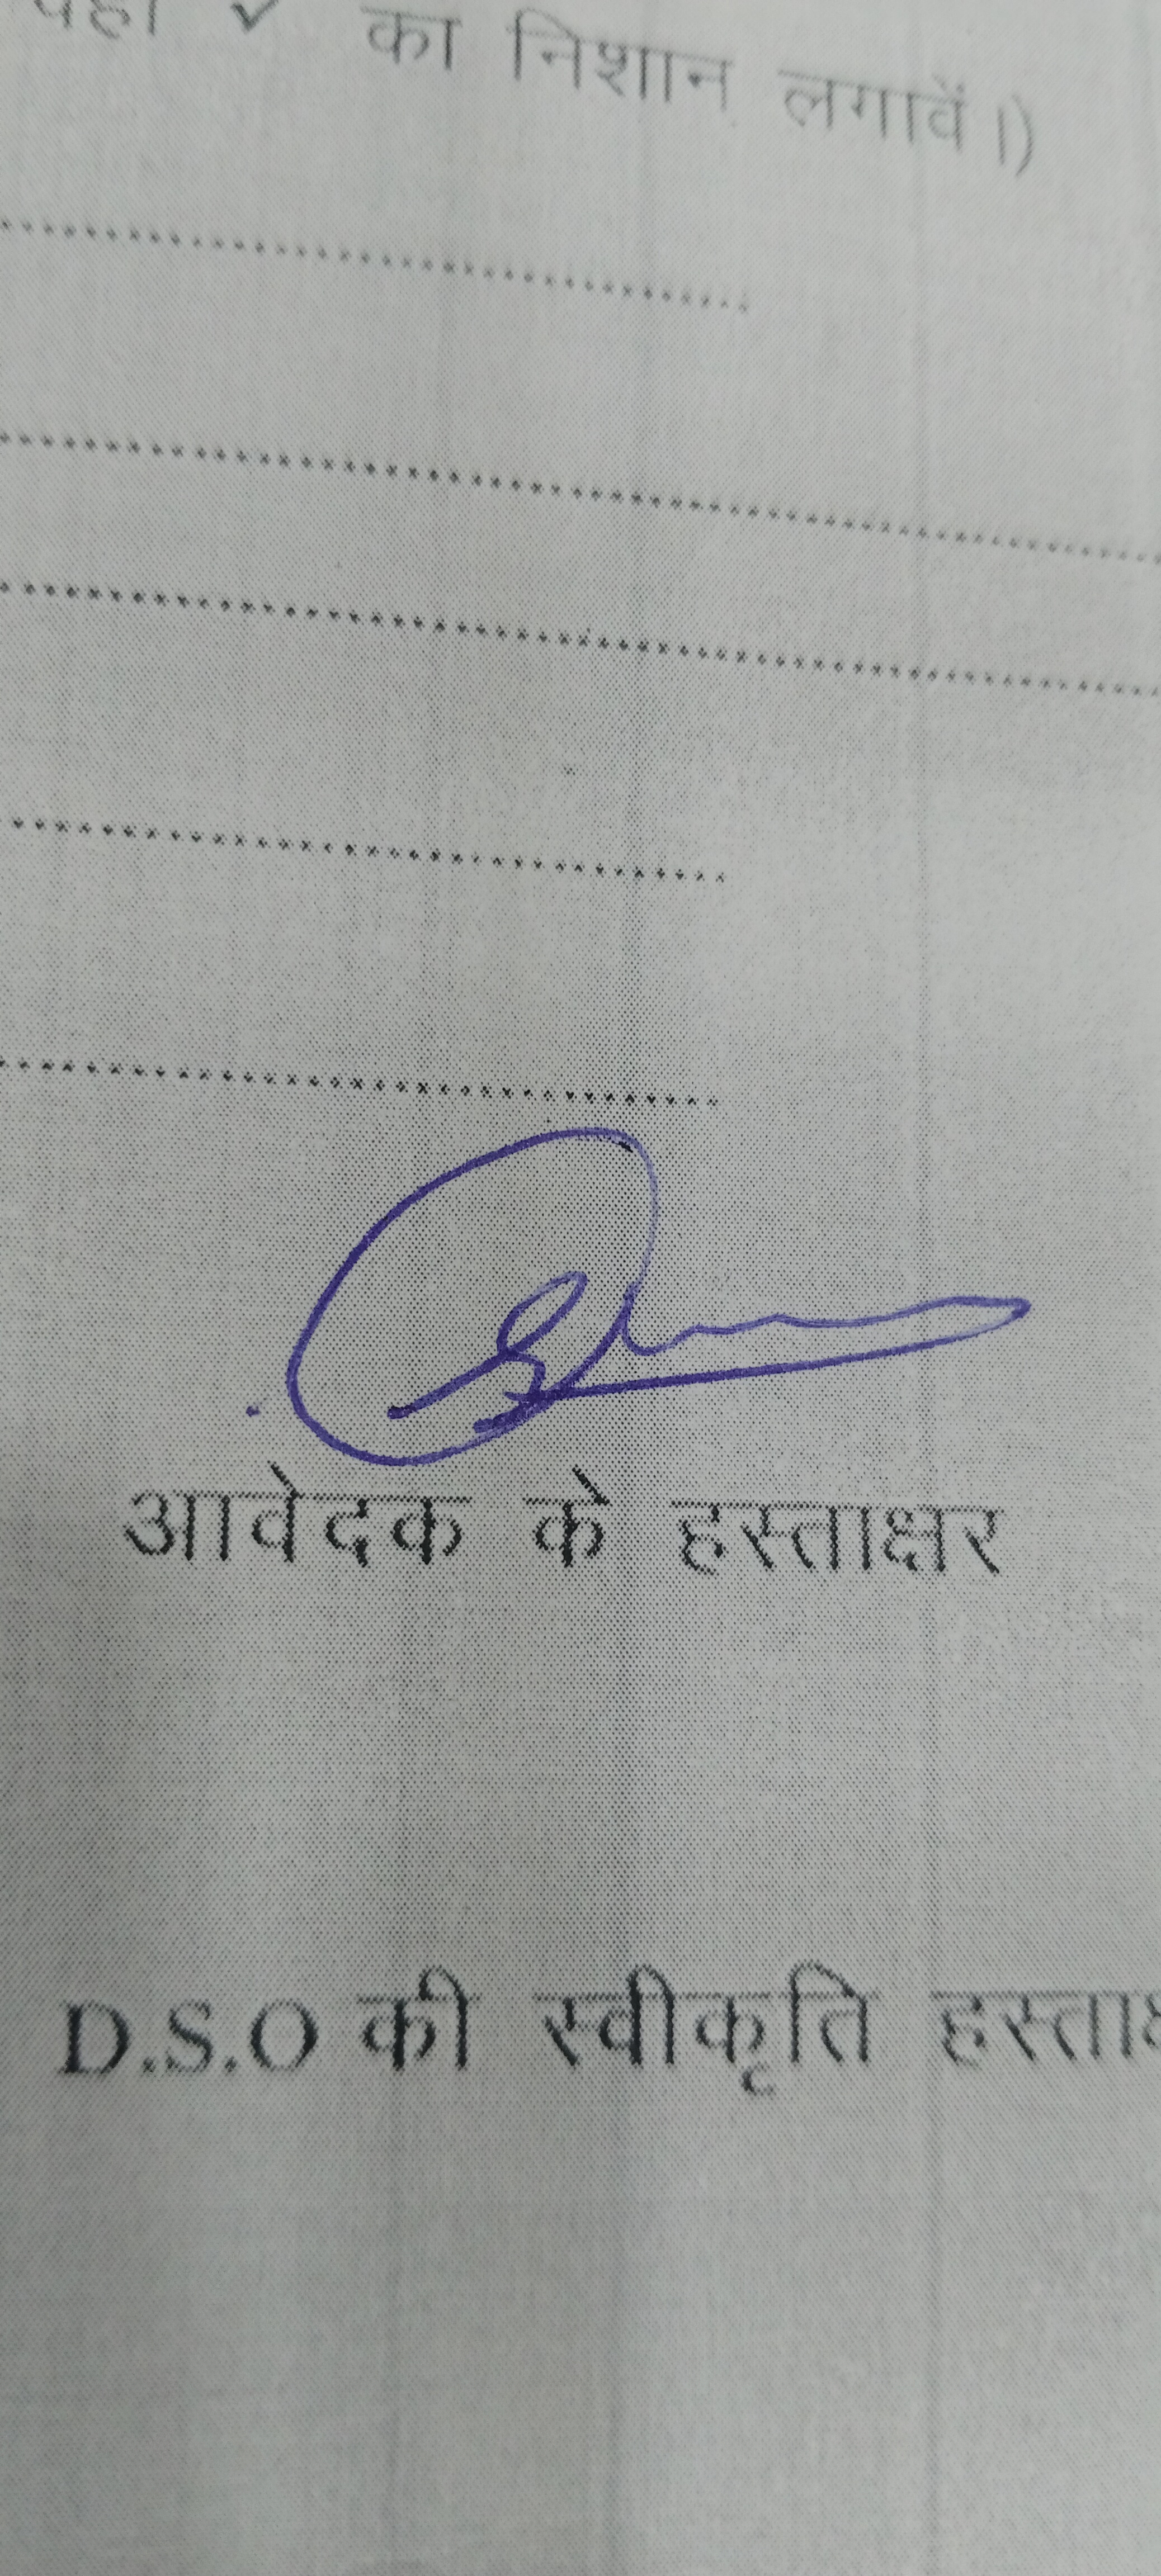 यहाँ ✓ का निशान लगावें।)
आवेदक के हस्ताक्षर
D.S.O की स्वीकृति